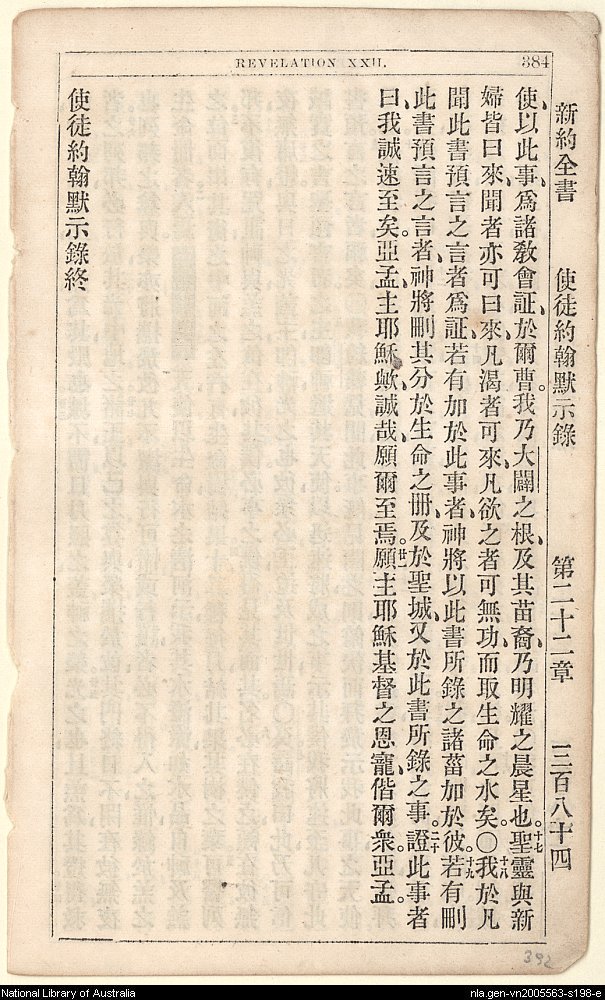 REVELATION XXII.
384
新約全書 使徒約翰默示錄 第二十二章 三百八十四
使、以此事、爲諸教會証、於爾曹。我乃大闢之根、及其苗裔、乃明耀之晨星也。十七聖靈與新
婦皆曰來、聞者亦可曰來、凡渴者可來、凡欲之者可無功而取生命之水矣。〇十八我於凡
聞此書預言之言者爲証、若有加於此事者、神將以此書所錄之諸菑加於彼。十九若有刪
此書預言之言者、神將刪其分於生命之冊、及於聖城、又於此書所錄之事。二十證此事者
曰、我誠速至矣。亞孟、主耶穌歟、誠哉、願爾至焉。廿一願主耶穌基督之恩寵、偕爾衆。亞孟。
使徒約翰默示錄終
392
National Library of Australia
nla.gen-vn2005563-s198-e